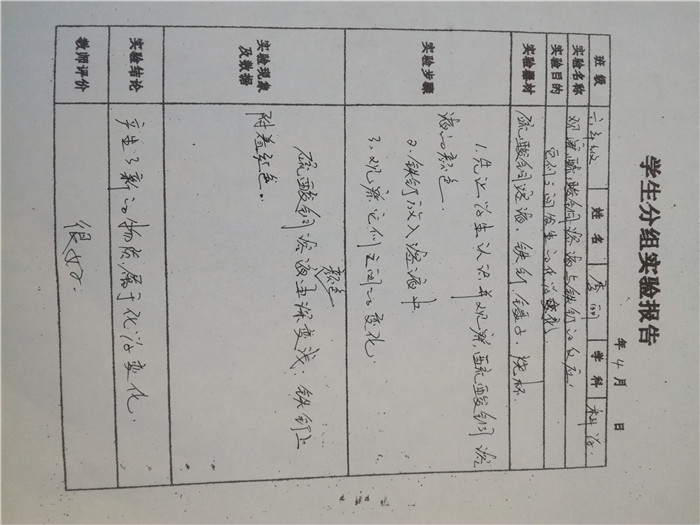 学生分组实验报告
年 4 月 日
班级 六年级 姓名 李丽 学科 科学.
实验名称 观察硫酸铜溶液与铁钉的反应.
实验目的 它们之间发生的化学变化
实验器材 硫酸铜溶液、铁钉、镊子、烧杯.
实验步骤
1.先让学生认识并观察硫酸铜溶
液的颜色.
2.铁钉放入溶液中
3.观察它们之间的变化.
实验现象
及数据
硫酸铜溶液颜色由深变浅.铁钉上
附着红色.
实验结论 产生了新的物质,属于化学变化.
教师评价 很好.